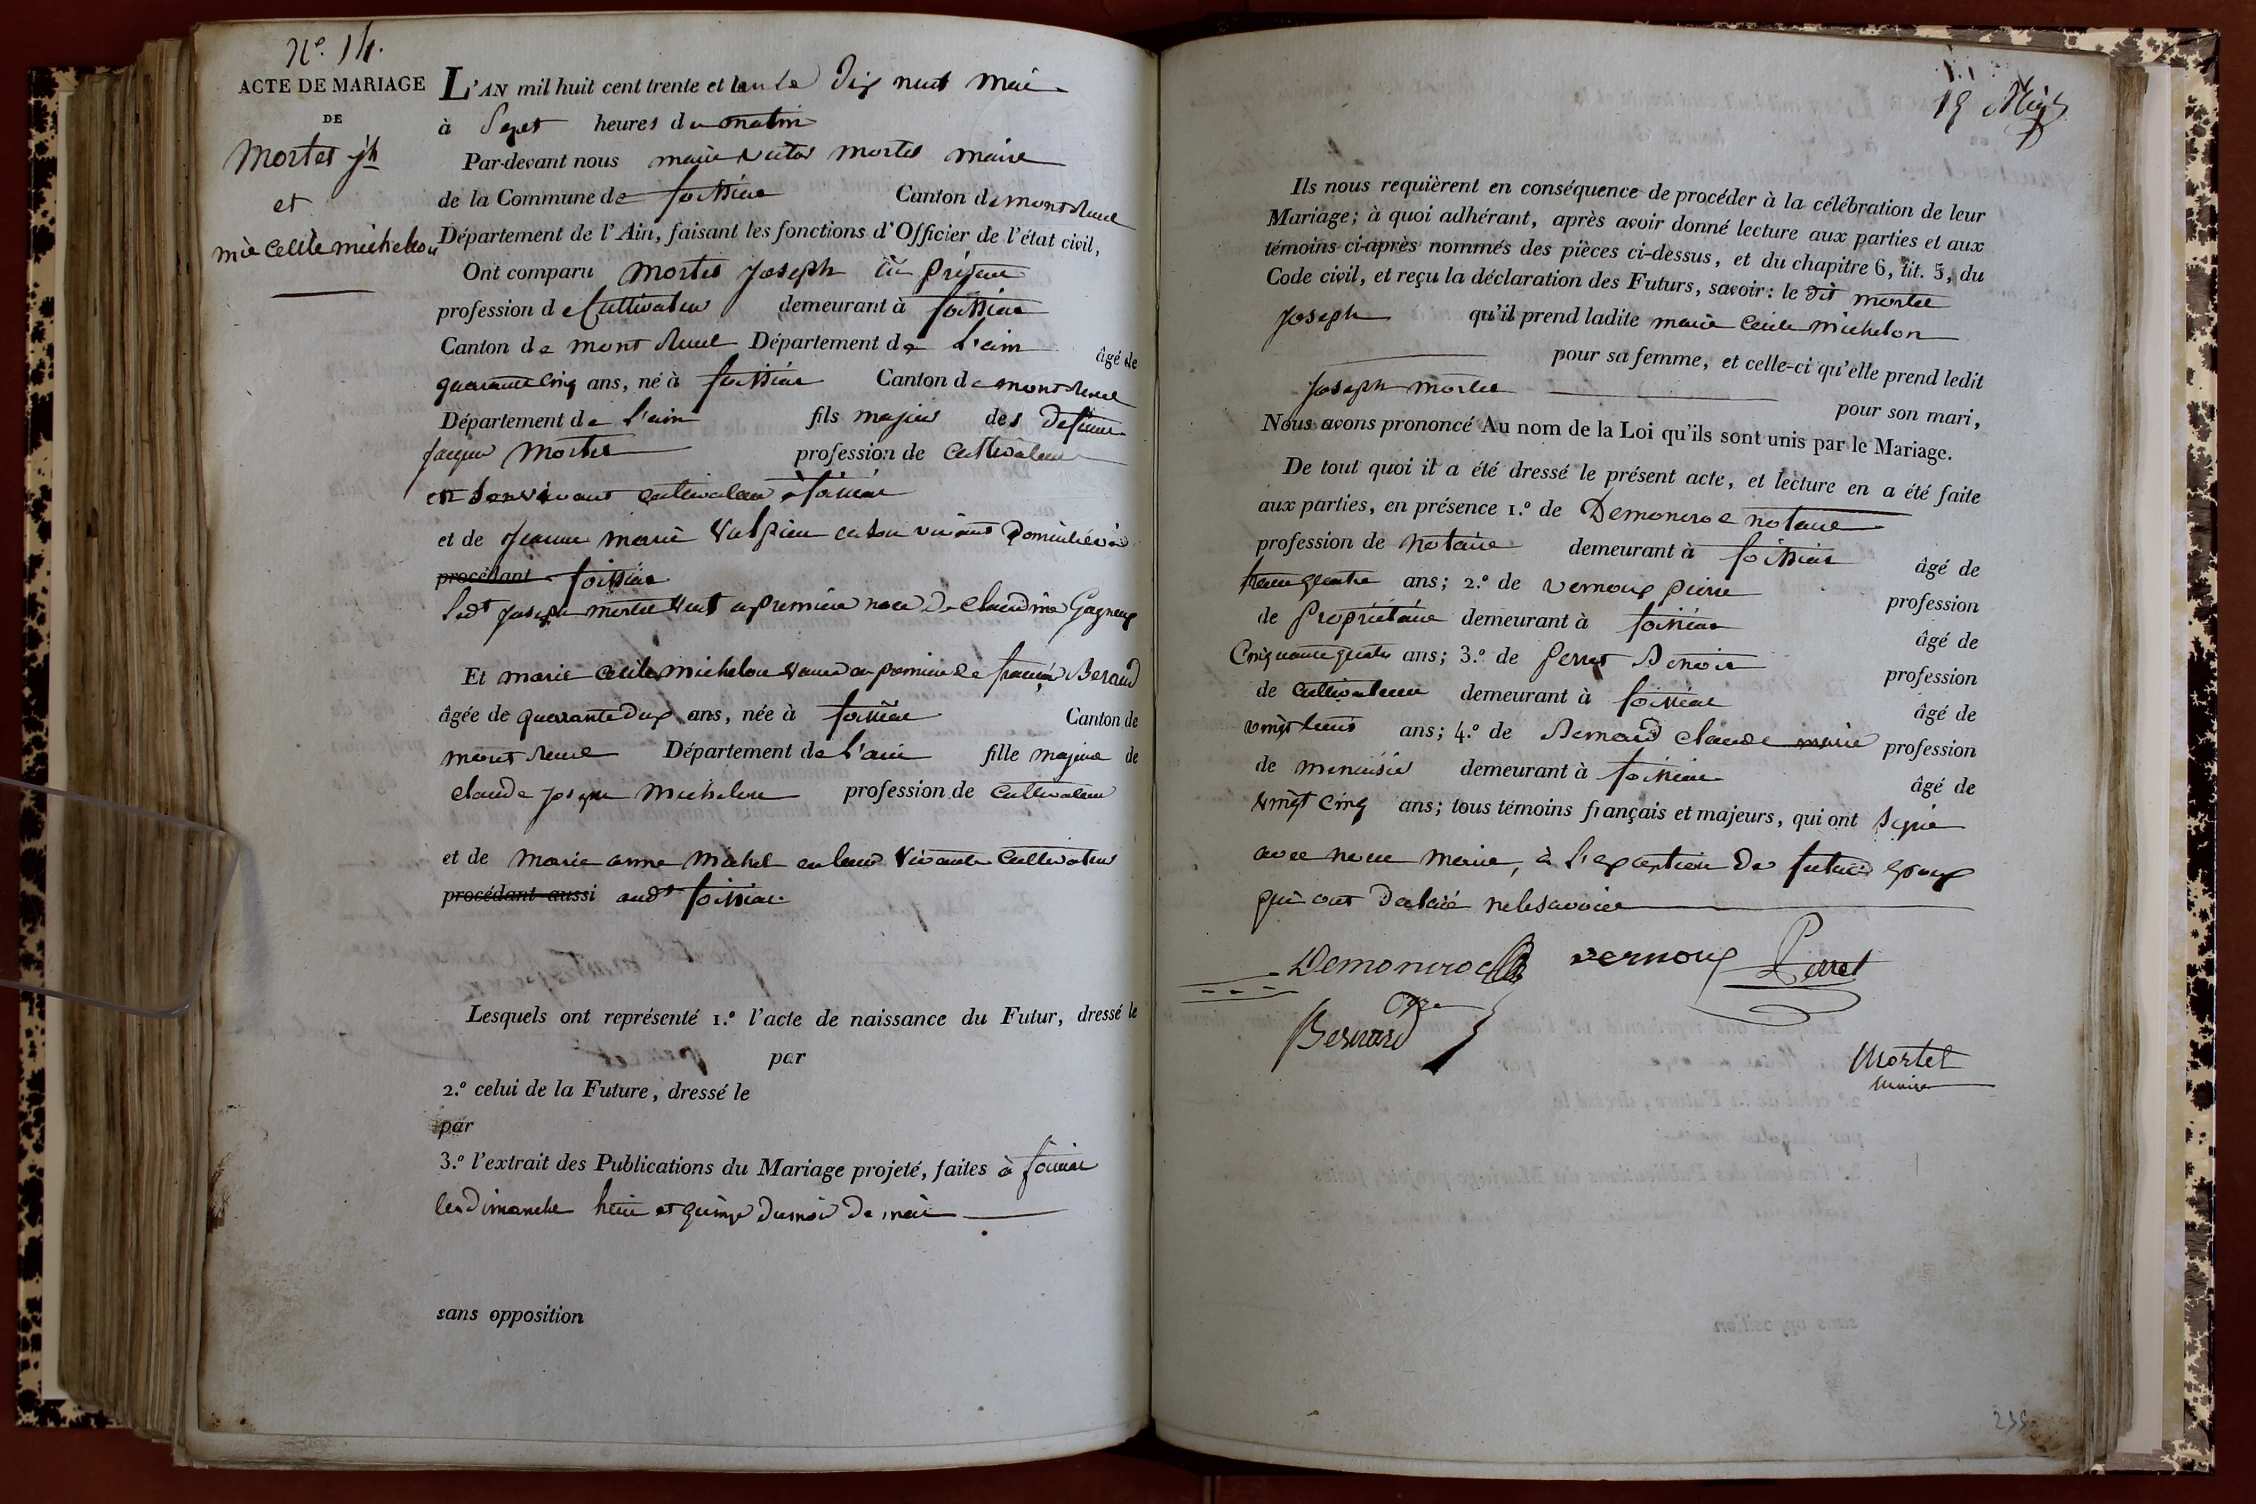 N.º 14.
ACTE DE MARIAGE
DE
Mortel jh
et
mie Cecile michelon
L'AN mil huit cent trente et un le dix neuf mai
à Sept heures du matin
Par-devant nous marie victor mortel maire
de la Commune de foissiat Canton de montrevel
Département de l'Ain, faisant les fonctions d'Officier de l'état civil,
Ont comparu Mortel Joseph ici présent
profession de Cultivateur demeurant à foissiat
Canton de montrevel Département de l'ain âgé de
quarante cinq ans, né à foissiat Canton de montrevel
Département de l'ain fils majeur des defunt
jacques Mortel profession de cultivateur
en son vivant cultivateur à foissiat
et de jeanne marie en son vivant domiciliée à
procédant foissiat
led.t joseph mortel veuf en première noce de claudine Gagneux
Et marie cecile michelon veuve en premier de françois Beraud
âgée de quarante deux ans, née à foissiat Canton de
montrevel Département de l'ain fille majeure de
claude joseph michelon profession de cultivateur
et de marie anne michel en leur vivant cultivateur
procédant aussi aud.t foissiat
Lesquels ont représenté 1.º l'acte de naissance du Futur, dressé le
par
2.º celui de la Future, dressé le
par
3.º l'extrait des Publications du Mariage projeté, faites à foissiat
les dimanche huit et quinze du mois de mai
sans opposition
19 Mai
Ils nous requièrent en conséquence de procéder à la célébration de leur
Mariage; à quoi adhérant, après avoir donné lecture aux parties et aux
témoins ci-après nommés des pièces ci-dessus, et du chapitre 6, tit. 5, du
Code civil, et reçu la déclaration des Futurs, savoir: le dit mortel
joseph qu'il prend ladite marie cecile michelon
pour sa femme, et celle-ci qu'elle prend ledit
joseph mortel pour son mari,
Nous avons prononcé Au nom de la Loi qu'ils sont unis par le Mariage.
De tout quoi il a été dressé le présent acte, et lecture en a été faite
aux parties, en présence 1.º de Demoncroc notaire
profession de notaire demeurant à foissiat âgé de
trente quatre ans; 2.º de vernoux pierre profession
de propriétaire demeurant à foissiat âgé de
Cinquante quatre ans; 3.º de perret Benoit profession
de cultivateur demeurant à foissiat âgé de
vingt huit ans; 4.º de Bernard claude marie profession
de menuisier demeurant à foissiat âgé de
vingt cinq ans; tous témoins français et majeurs, qui ont signé
avec nous maire, à l'exception des futurs epoux
qui ont déclaré ne le savoir
Demoncroc vernoux Perret
Bernard
Mortel
maire
235